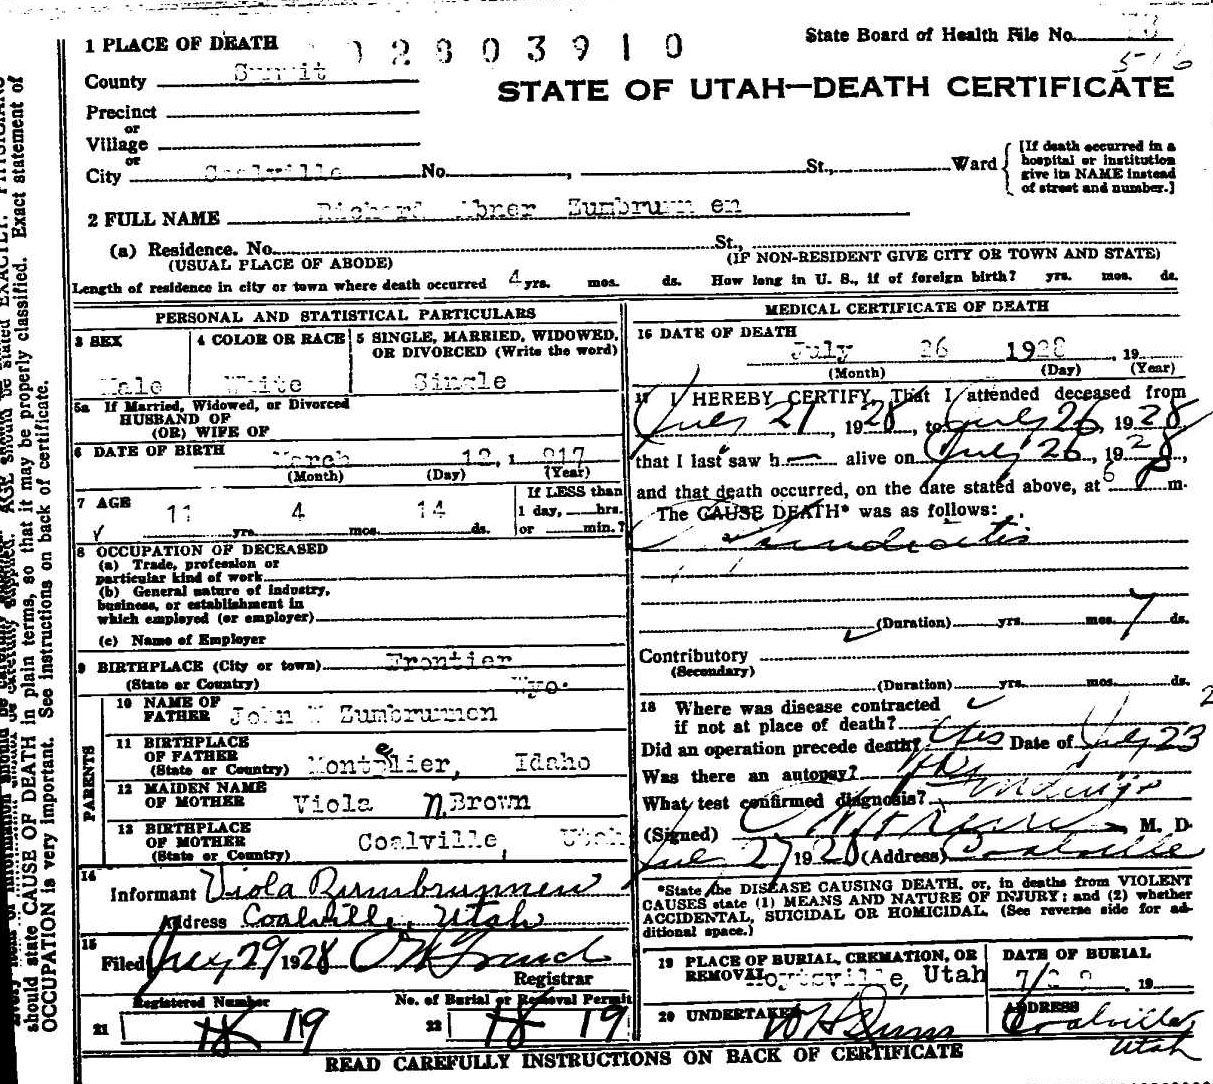 1 PLACE OF DEATH
0 2 8 0 3 9 1 0
State Board of Health File No.
516
County Summit
STATE OF UTAH—DEATH CERTIFICATE
Precinct
or
Village
or
City Coalville No. , St., Ward
[If death occurred in a
hospital or institution
give its NAME instead
of street and number.]
2 FULL NAME Richard Abner Zumbrunnen
(a) Residence. No. St.,
(USUAL PLACE OF ABODE) (IF NON-RESIDENT GIVE CITY OR TOWN AND STATE)
Length of residence in city or town where death occurred 4 yrs. mos. ds. How long in U. S., if of foreign birth? yrs. mos. ds.
PERSONAL AND STATISTICAL PARTICULARS
3 SEX
Male
4 COLOR OR RACE
White
5 SINGLE, MARRIED, WIDOWED,
OR DIVORCED (Write the word)
Single
5a If Married, Widowed, or Divorced
HUSBAND OF
(OR) WIFE OF
6 DATE OF BIRTH March 12, 1 917
(Month) (Day) (Year)
7 AGE
11 yrs. 4 mos. 14 ds.
If LESS than
1 day, hrs.
or min.?
8 OCCUPATION OF DECEASED
(a) Trade, profession or
particular kind of work
(b) General nature of industry,
business, or establishment in
which employed (or employer)
(c) Name of Employer
9 BIRTHPLACE (City or town) Frontier
(State or Country) Wyo.
PARENTS
10 NAME OF
FATHER John W Zumbrunnen
11 BIRTHPLACE
OF FATHER
(State or Country) Montpelier, Idaho
12 MAIDEN NAME
OF MOTHER Viola N. Brown
13 BIRTHPLACE
OF MOTHER
(State or Country) Coalville, Utah
14
Informant Viola Zumbrunnen
Address Coalville, Utah
15
Filed July 29 1928
Registrar
Registered Number
21 18 19
No. of Burial or Removal Permit
22 18 19
MEDICAL CERTIFICATE OF DEATH
16 DATE OF DEATH
July 26 1928, 19
(Month) (Day) (Year)
17 I HEREBY CERTIFY, That I attended deceased from
July 21, 1928, to July 26, 1928
that I last saw h alive on July 26, 1928,
and that death occurred, on the date stated above, at 6 P m.
The CAUSE DEATH* was as follows:
Appendicitis
(Duration) yrs. mos. 7 ds.
Contributory
(Secondary)
(Duration) yrs. mos. ds.
18 Where was disease contracted
if not at place of death?
Did an operation precede death? Yes Date of July 23
Was there an autopsy? No
What test confirmed diagnosis? Findings
(Signed) M. D.
July 27 1928 (Address) Coalville
*State the DISEASE CAUSING DEATH, or, in deaths from VIOLENT
CAUSES state (1) MEANS AND NATURE OF INJURY; and (2) whether
ACCIDENTAL, SUICIDAL OR HOMICIDAL. (See reverse side for ad-
ditional space.)
19 PLACE OF BURIAL, CREMATION, OR
REMOVAL Hoytsville, Utah
DATE OF BURIAL
7/ , 19
20 UNDERTAKER
ADDRESS
Coalville
Utah
READ CAREFULLY INSTRUCTIONS ON BACK OF CERTIFICATE
should state CAUSE OF DEATH in plain terms, so that it may be properly classified. Exact statement of
OCCUPATION is very important. See instructions on back of certificate.